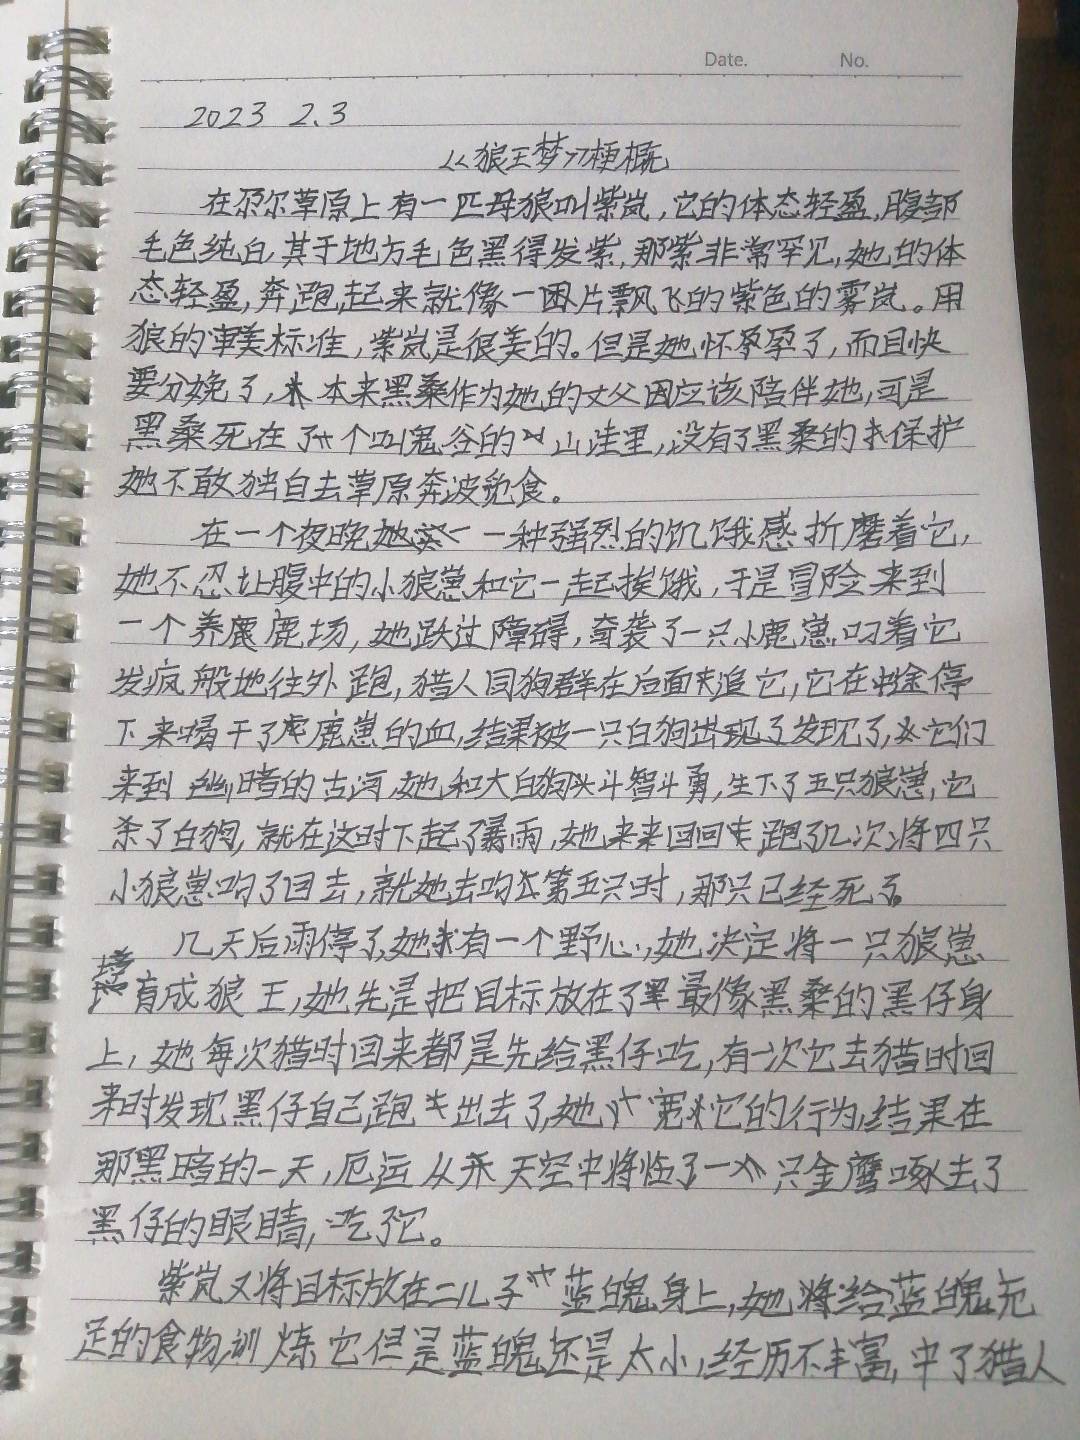 Date. No.
2023 2.3
《狼王梦》梗概
在尕尔草原上有一匹母狼叫紫岚,它的体态轻盈,腹部
毛色纯白,其于地方毛色黑得发紫,那紫非常罕见,她的体
态轻盈,奔跑起来就像一团片飘飞的紫色的雾岚。用
狼的审美标准,紫岚是很美的。但是她怀孕了,而且快
要分娩了,本来黑桑作为她的丈夫因应该陪伴她,可是
黑桑死在了个叫鬼谷的山洼里,没有了黑桑的保护
她不敢独自去草原奔波觅食。
在一个夜晚她一种强烈的饥饿感折磨着它,
她不忍让腹中的小狼崽和它一起挨饿,于是冒险来到
一个养鹿场,她跃过障碍,奇袭了一只小鹿崽叼着它
发疯般地往外跑,猎人因狗群在后面追它,它在中途停
下来喝干了鹿崽的血,结果被一只白狗发现了,它们
来到幽暗的古河,她和大白狗斗智斗勇,生下了五只狼崽,它
杀了白狗,就在这时下起了暴雨,她来来回回跑了几次将四只
小狼崽叼了回去,就她去叼第五只时,那只已经死了。
几天后雨停了,她有一个野心,她决定将一只狼崽
培育成狼王,她先是把目标放在了最像黑桑的黑仔身
上,她每次猎时回来都是先给黑仔吃,有一次它去猎时回
来时发现黑仔自己跑出去了,她宽它的行为,结果在
那黑暗的一天,厄运从天空中将临了一只金鹰啄去了
黑仔的眼睛,吃了它。
紫岚又将目标放在二儿子蓝魄身上,她将给蓝魄充
足的食物,训炼它但是蓝魄还是太小,经历不丰富,中了猎人